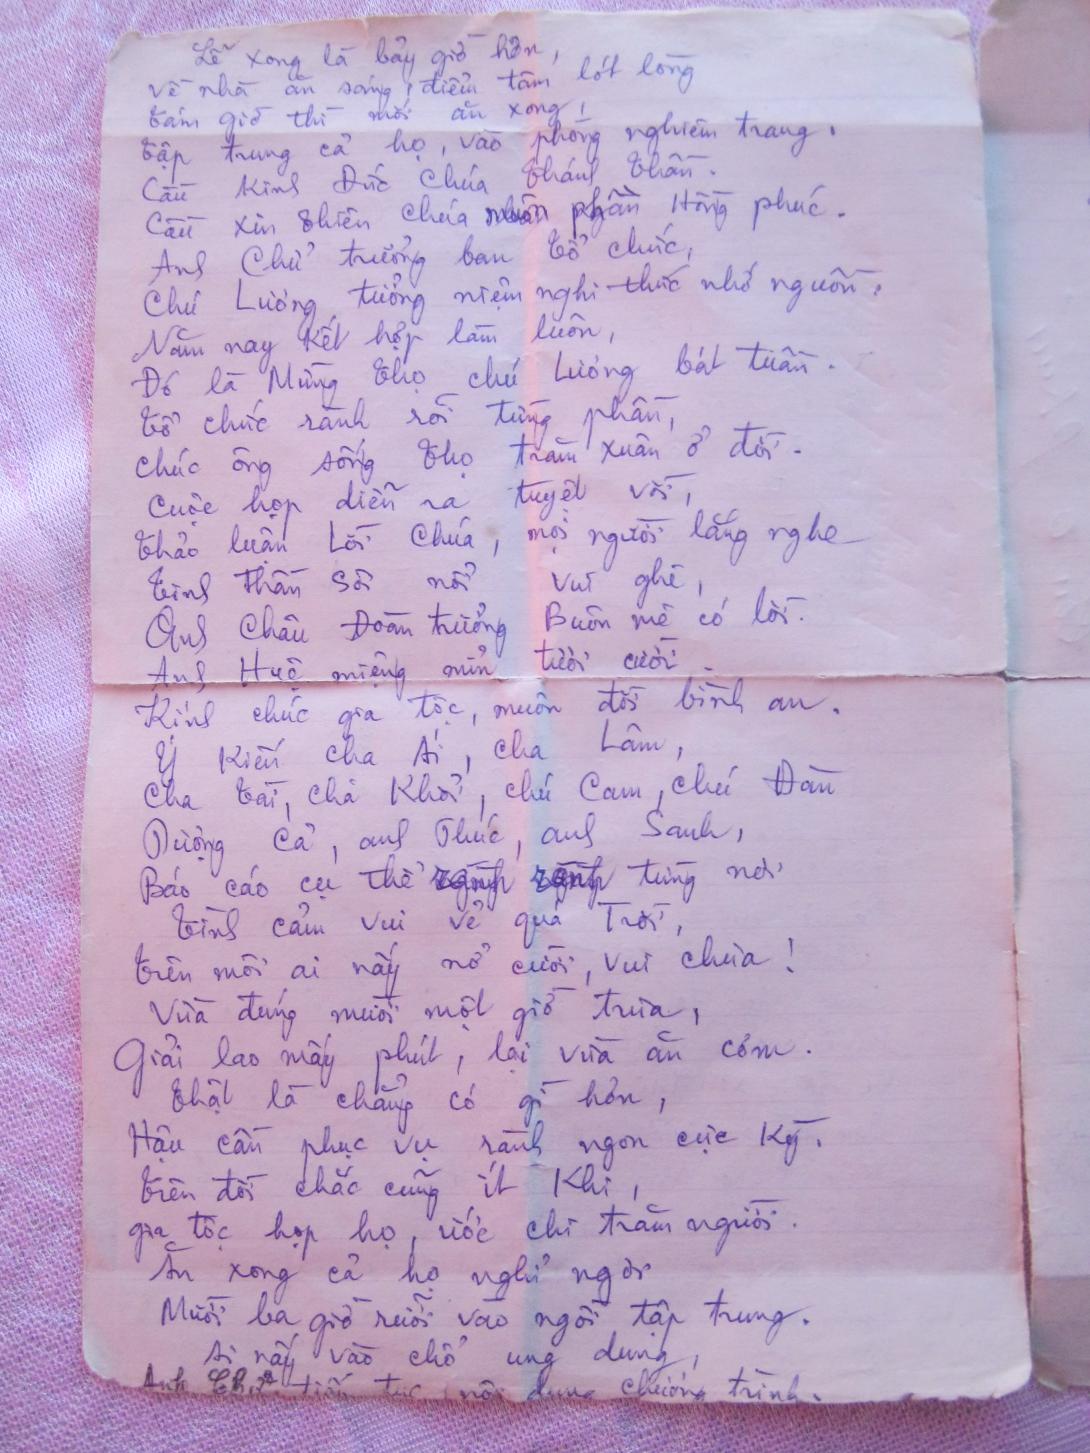 Lễ xong là bảy giờ hơn,
về nhà ăn sáng, điểm tâm lót lòng
tám giờ thì mới ăn xong,
tập trung cả họ, vào phòng nghiêm trang.
Cầu Kinh Đức Chúa thánh thần.
Cầu xin thiên chúa muôn phần Hồng phúc.
Anh Chử trưởng ban tổ chức,
Chú Lương tưởng niệm nghi thức nhớ nguồn.
Năm nay kết hợp làm luôn,
Đó là Mừng thọ chú Lương bát tuần.
tổ chức rành rõi từng phần,
chúc ông sống thọ trăm xuân ở đời.
Cuộc họp diễn ra tuyệt vời,
thảo luận Lời Chúa, mọi người lắng nghe
tinh thần sôi nổi vui ghê,
Anh Châu Đoàn trưởng Buôn mê có lời.
Anh Huệ miệng mỉn tười cười.
Kính chúc gia tộc, muôn đời bình an.
Ý Kiến cha Ái, cha Lâm,
cha tài, cha Khởi, chú Cam, chú Đàn
Dượng Cả, anh Thức, anh Sanh,
Báo cáo cụ thể từng nơi
tình cảm vui vẻ quá Trời,
trên môi ai nấy nở cười, vui chưa!
Vừa đúng mười một giờ trưa,
Giải lao mấy phút, lại vừa ăn cơm.
thật là chẳng có gì hơn,
Hậu cần phục vụ rành ngon cực Kỳ.
trên đời chắc cũng ít Khi,
gia tộc họp họ, ước chi trăm người.
Ăn xong cả họ nghỉ ngơi
Mười ba giờ rưỡi vào ngồi tập trung.
Ai nấy vào chổ ung dung,
Anh tiếp tục nội dung chương trình.